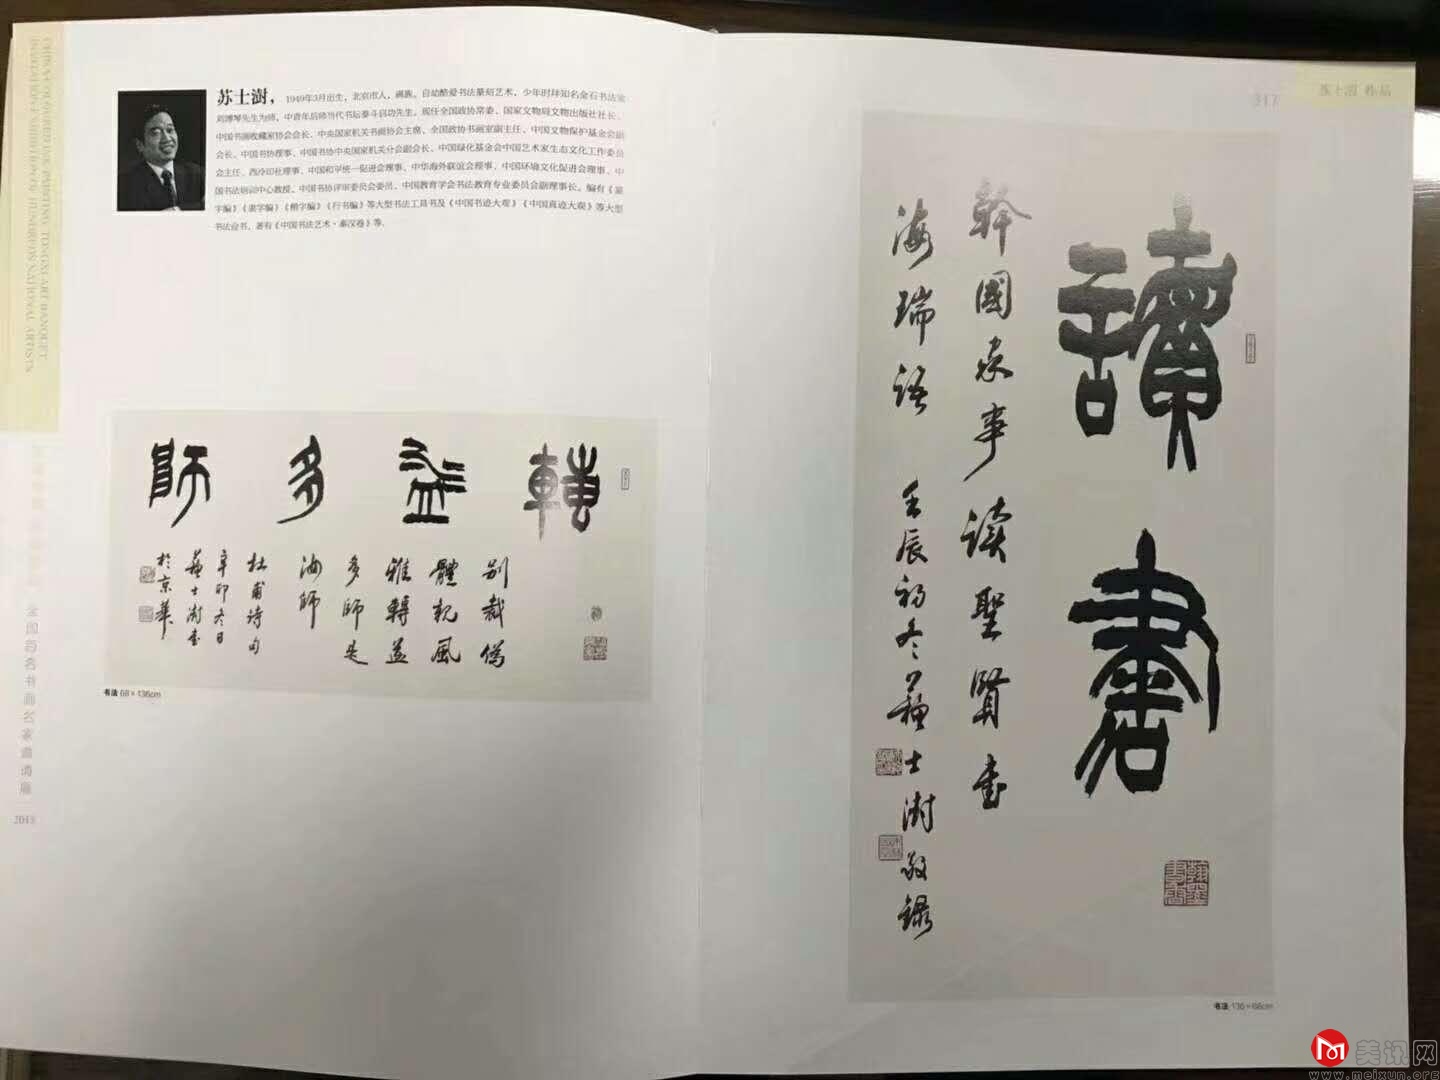 CHINA COLOURED INK PAINTING, TONGXI ART BANQUET
INVITATION EXHIBITION ON HUNDREDS NATIONAL ARTISTS
全国百名书画名家邀请展
2013
苏士澍，1949年3月出生，北京市人，满族。自幼酷爱书法篆刻艺术，少年时拜知名金石书法家
刘博琴先生为师，中青年后师当代书坛泰斗启功先生。现任全国政协常委、国家文物局文物出版社社长、
中国书画收藏家协会会长、中央国家机关书画协会主席、全国政协书画室副主任、中国文物保护基金会副
会长、中国书协理事、中国书协中央国家机关分会副会长、中国绿化基金会中国艺术家生态文化工作委员
会主任、西泠印社理事、中国和平统一促进会理事、中华海外联谊会理事、中国环境文化促进会理事、中
国书法培训中心教授、中国书协评审委员会委员、中国教育学会书法教育专业委员会副理事长。编有《篆
字编》《隶字编》《楷字编》《行书编》等大型书法工具书及《中国书迹大观》《中国真迹大观》等大型
书法丛书，著有《中国书法艺术·秦汉卷》等。
轉益多師
别裁偽
體親風
雅轉益
多師是
汝師
杜甫诗句
辛卯冬日
蘇士澍書
於京華
书法 68×136cm
317
苏士澍 作品
讀書
幹國家事读聖賢書
海瑞語 壬辰初冬蘇士澍敬録
翰墨書香
书法 136×68cm
美讯网
www.meixun.org